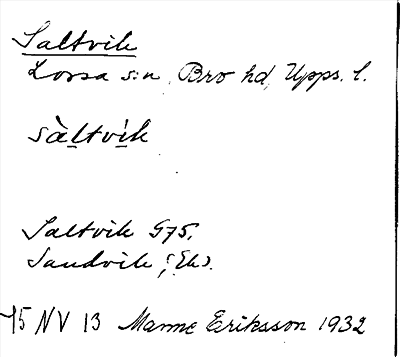 Saltvik
Lossa s:n, Bro hd, Upps. l.
sàltvik
Saltvik G75.
Sandvik, (Ek).
75 NV 13 Manne Eriksson 1932